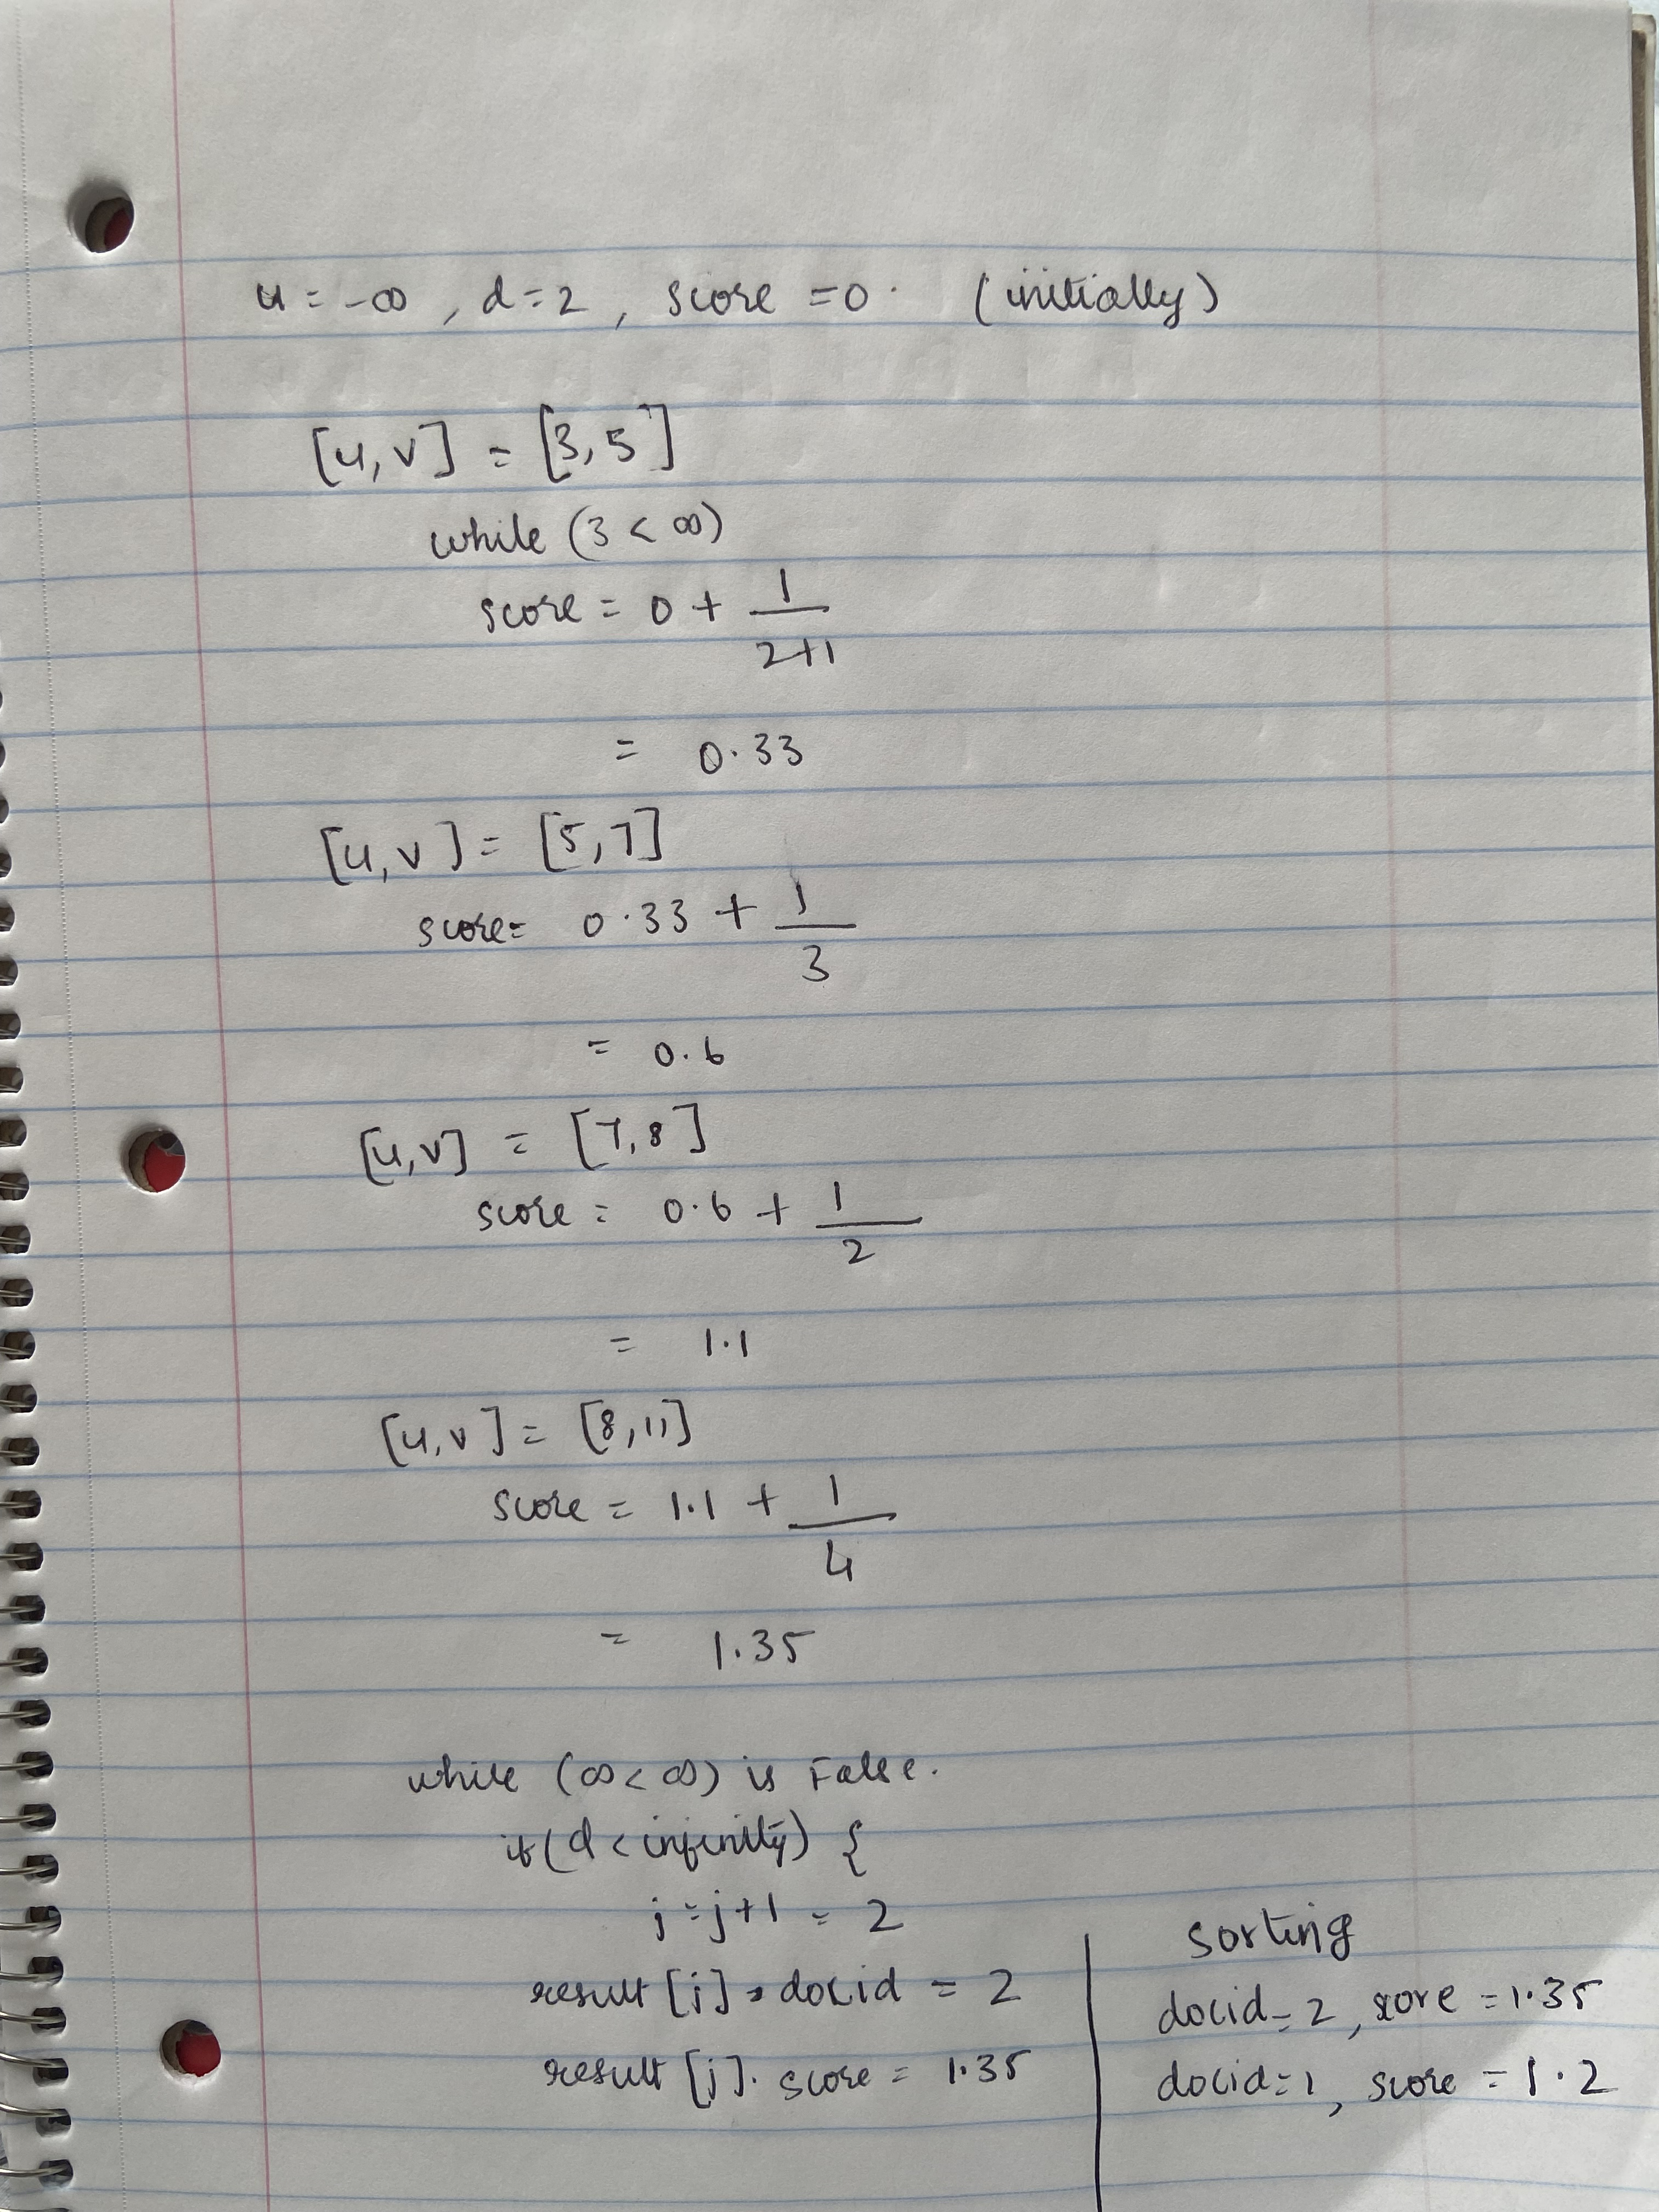 u = -∞, d=2, score =0. (initially)
[u,v] = [3,5]
while (3 < ∞)
score = 0 + 1/(2+1)
= 0.33
[u,v] = [5,7]
score= 0.33 + 1/3
= 0.6
[u,v] = [7,8]
score = 0.6 + 1/2
= 1.1
[u,v] = [8,11]
score = 1.1 + 1/4
= 1.35
while (∞<∞) is False.
if(d<infinity) {
j=j+1 = 2
result[j].docid = 2
result[j].score = 1.35
sorting
docid=2, score =1.35
docid=1, score =1.2